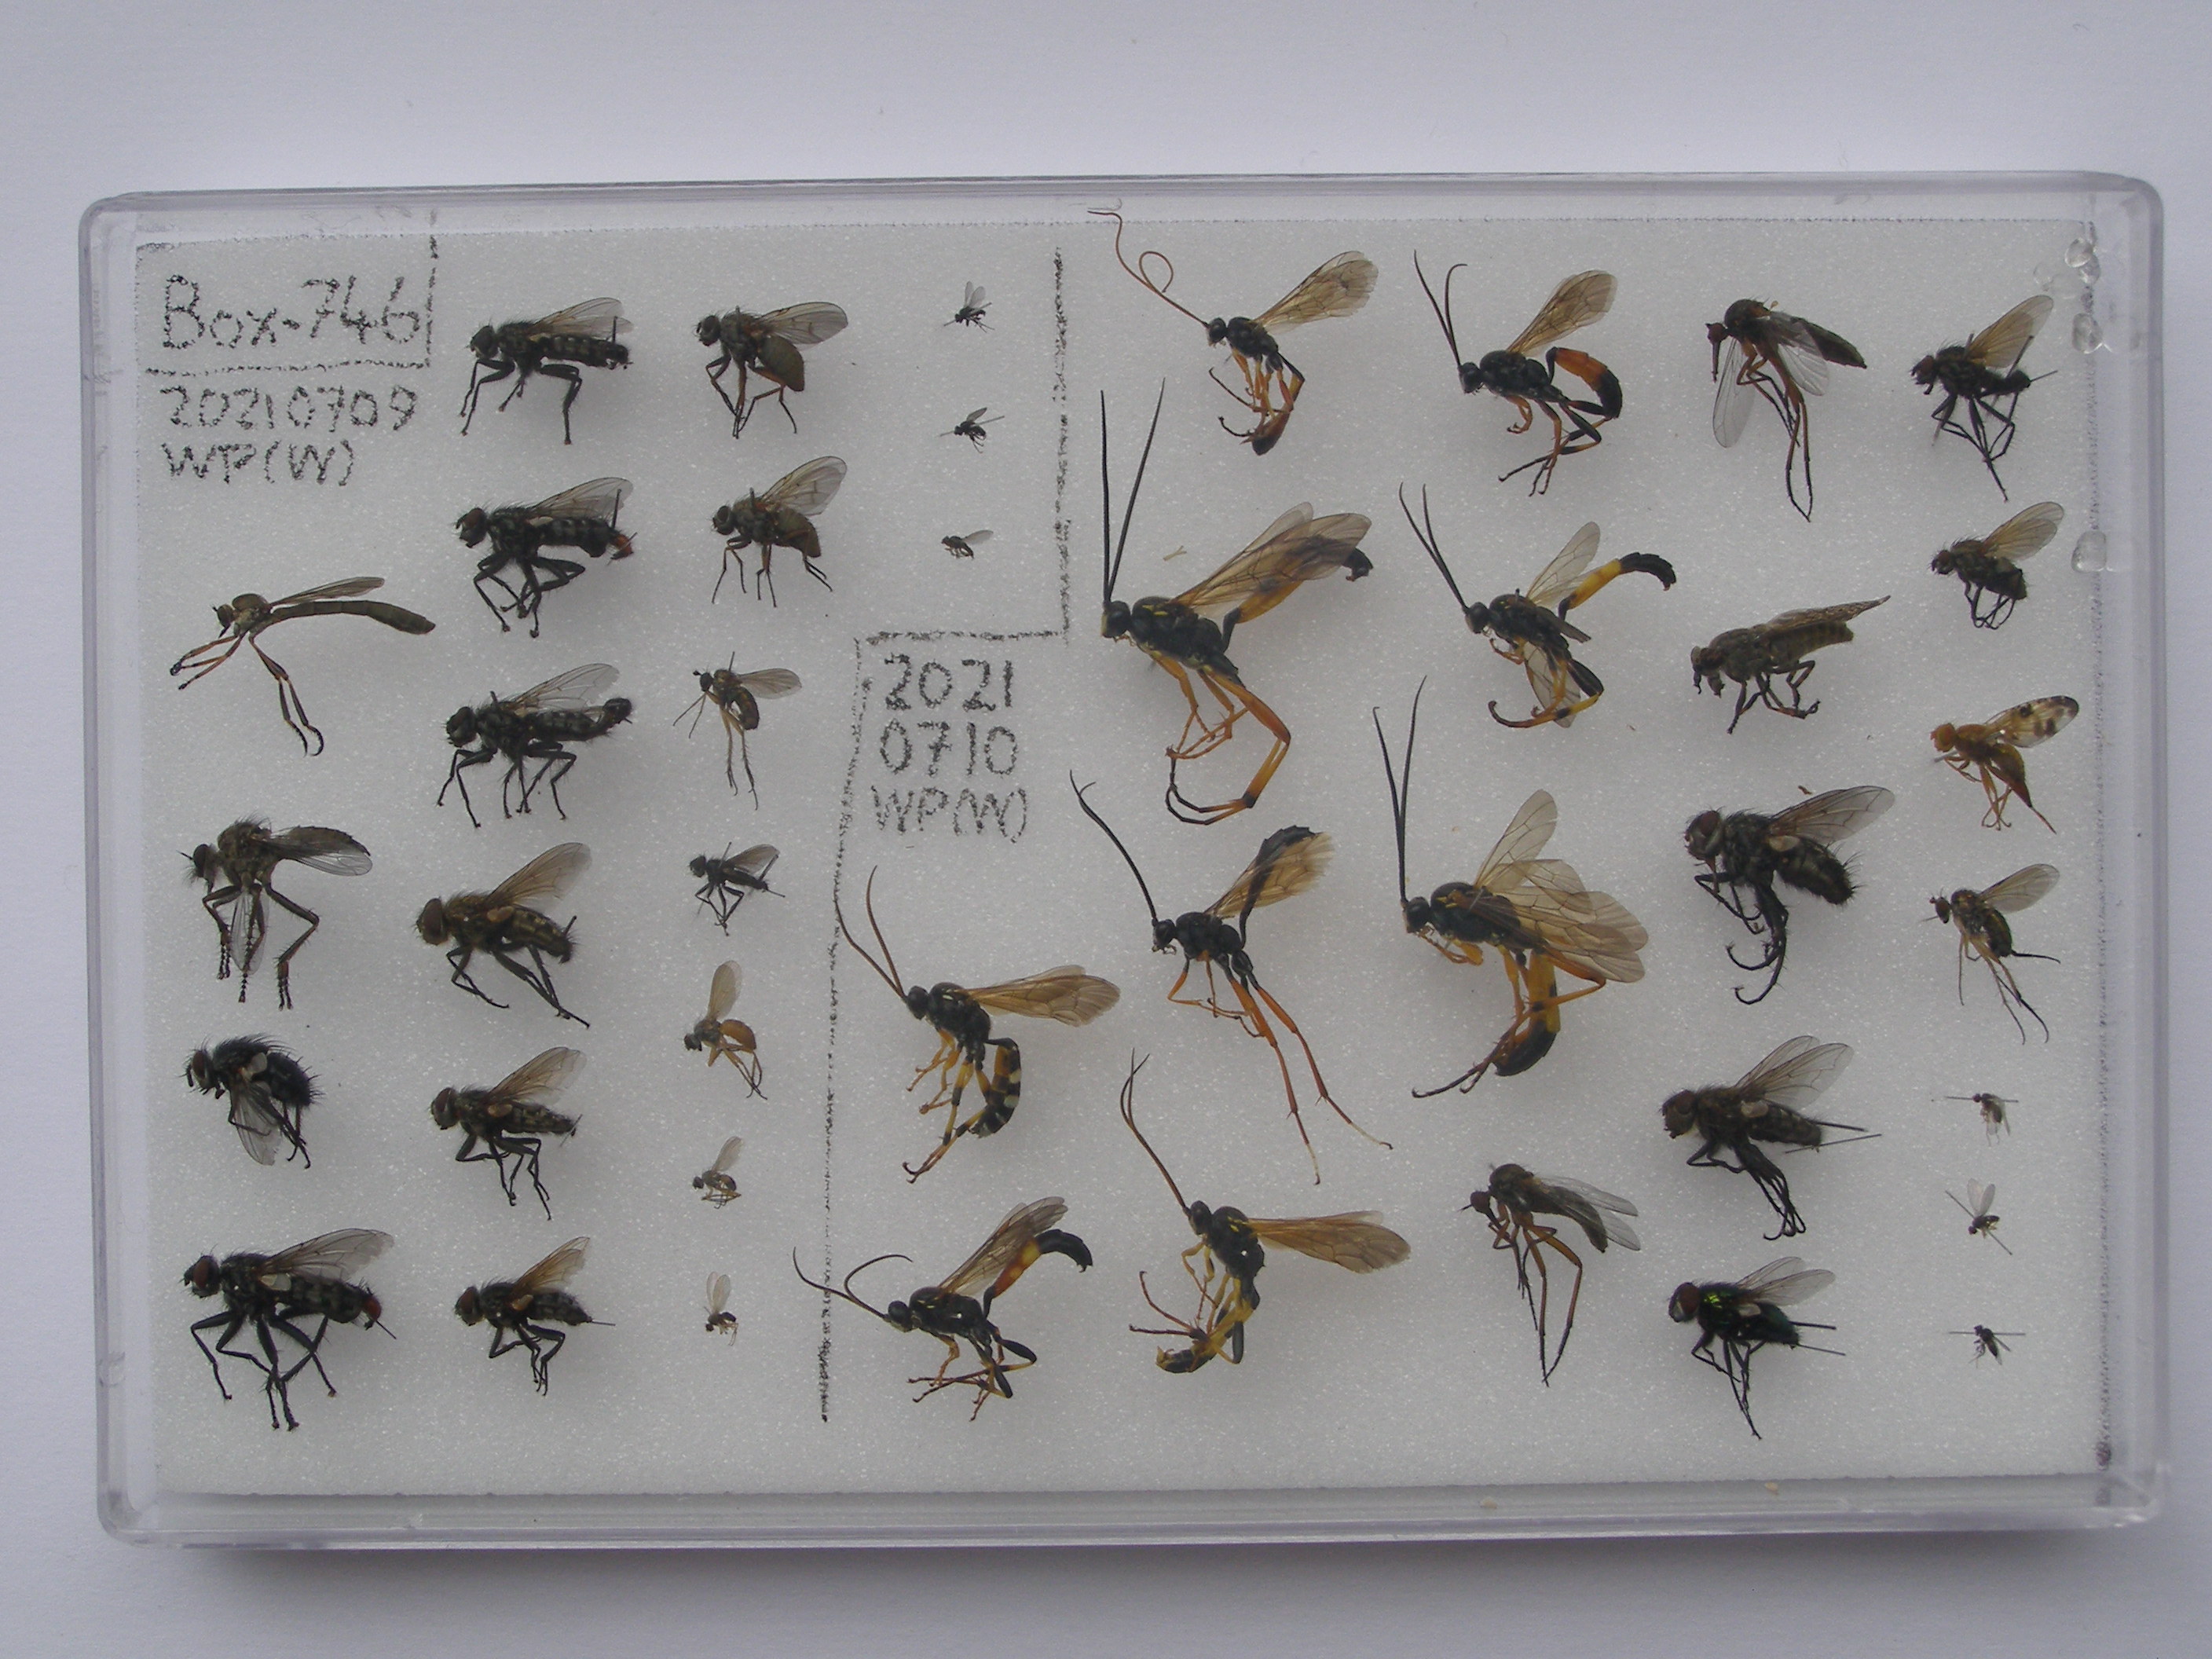 Box-746
20210709
WP(W)
2021
0710
WP(W)